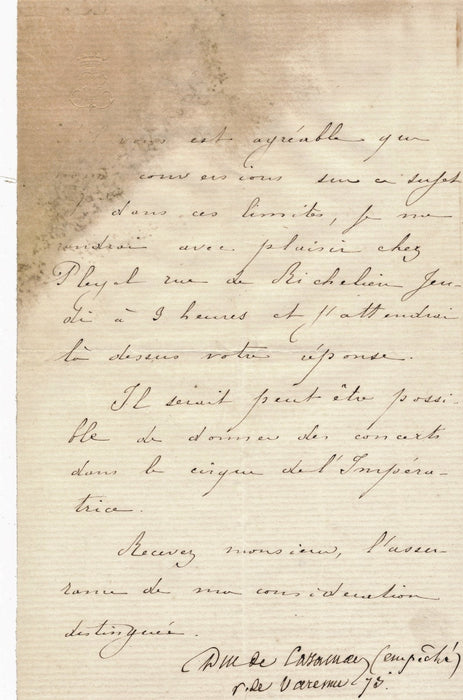 vous est agréable que
conversions sur ce sujet
dans ces limites, je me
rendrai avec plaisir chez
Pleyel rue de Richelieu Jeu-
di à 3 heures et j'attendrai
là dessus votre réponse.
Il serait peut être possi-
ble de donner des concerts
dans le cirque de l'Impéra-
trice.
Recevez monsieur, l'assu
rance de ma considération
distinguée.
de (empêché)
r. de Varenne 73